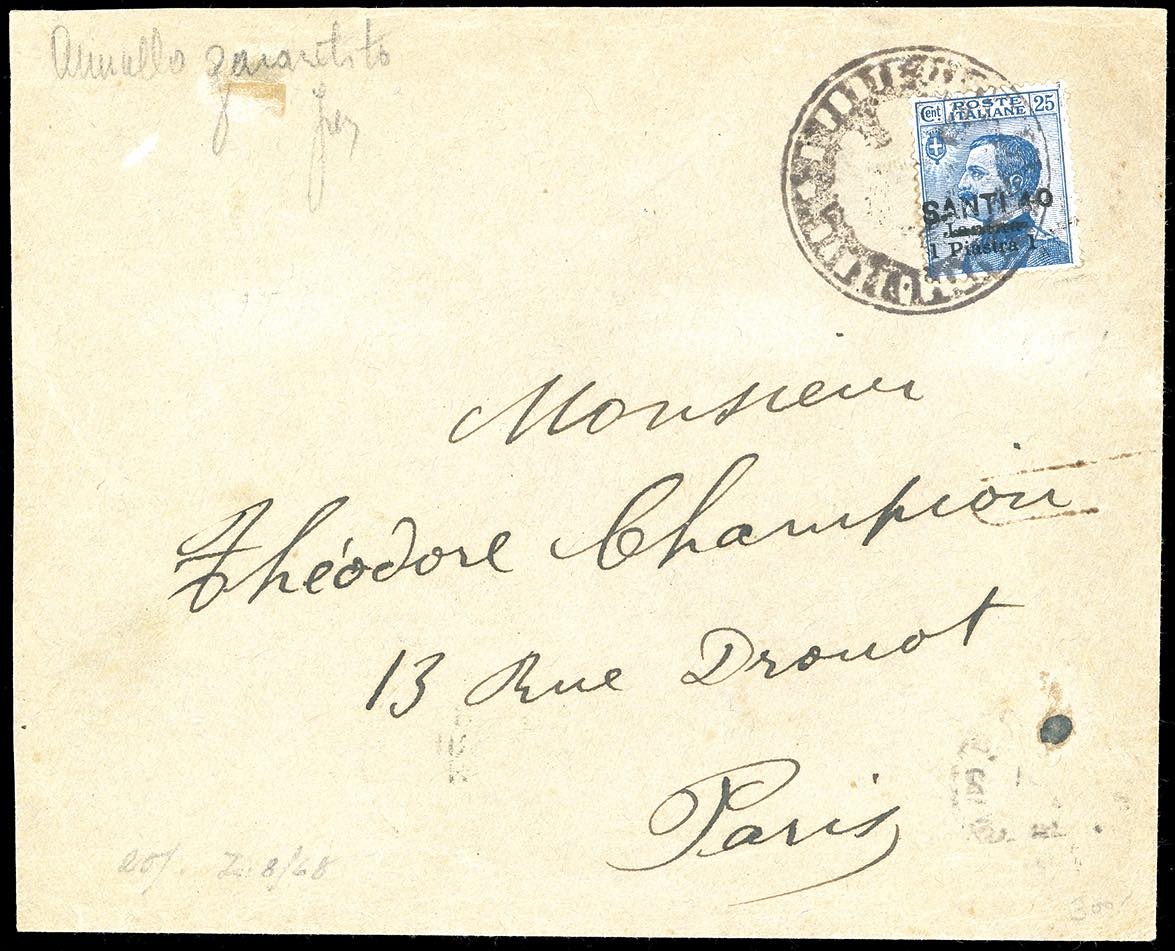 Annullo garantito
Cent. POSTE ITALIANE 25
1 Piastra 1
Monsieur
Théodore Champion
13 Rue Drouot
Paris